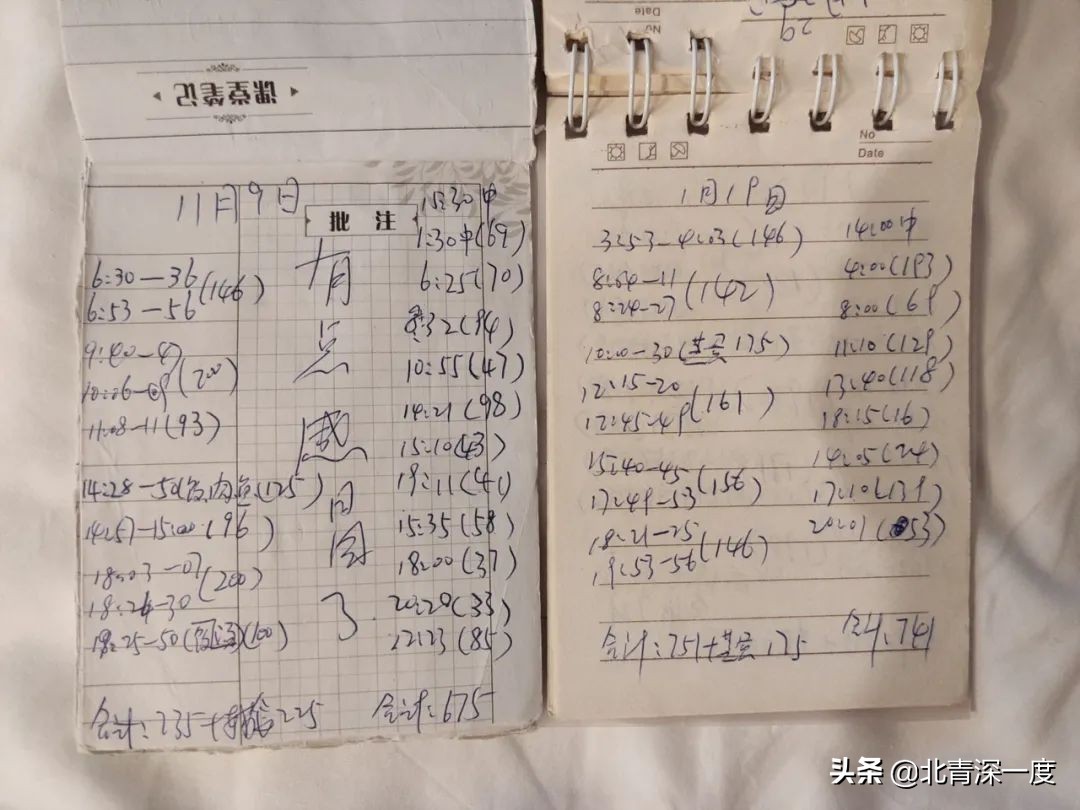 课堂笔记
11月9日
批 注
6:30—36
6:53—56(146)
9:40—47
10:06—09(200)
11:08—11(93)
14:28—50(125)
14:57—15:00(96)
18:03—07
18:24—30(200)
(100)
合计:735+ 225
有
点
感
同
了
15:30中
1:30中(69)
6:25(70)
8:32(94)
10:55(47)
14:21(98)
15:10(43)
19:11(41)
15:35(58)
18:00(37)
20:20(33)
22:23(85)
合计:675
No
Date
29
No
Date
1月19日
3:53—4:03(146)
8:04—11
8:24—27(142)
10:20—30( 175)
12:15—20
12:45—49(161)
15:40—45
17:49—53(156)
18:21—25
19:53—56(146)
合计:751+ 175
14:00中
4:00(193)
8:00(69)
11:10(129)
13:40(118)
18:15(16)
14:05(24)
17:10(139)
20:01(53)
合计:741
头条 @北青深一度